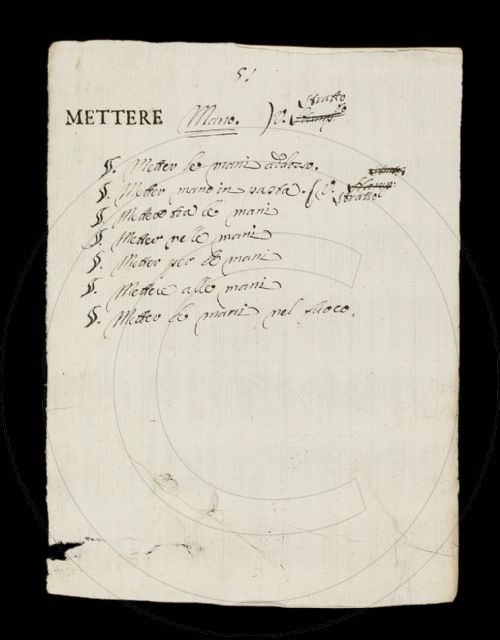 51
Stratto
METTERE Mano. ) V. Stamp.º
§. Metter le mani addosso.
§. Metter mano in pasta. ( V. Stamp.
Stratto
§. Mettere tra le mani
§. Metter nelle mani
§. Metter per le mani
§. Mettere alle mani
§. Metter le mani nel fuoco.